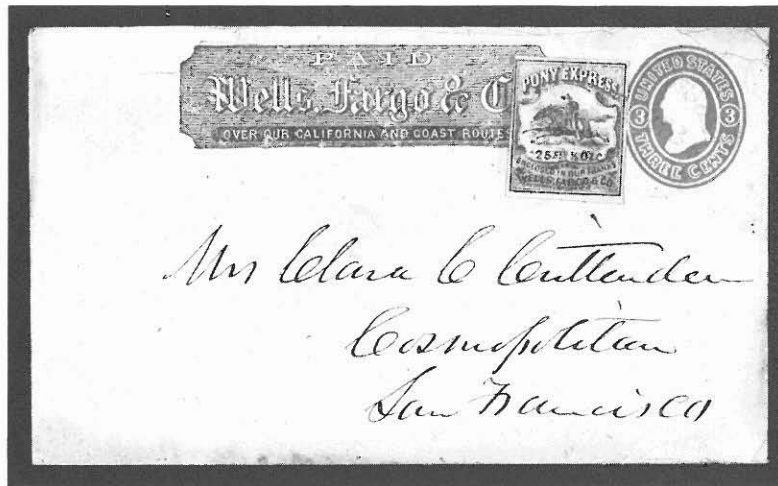 PAID
Wells, Fargo & C
OVER OUR CALIFORNIA AND COAST ROUTES
PONY EXPRESS
25
ENCLOSED IN OUR FRANKS
WELLS, FARGO & CO
UNITED STATES
3 3
THREE CENTS
Mrs Clara C Crittenden
Cosmopolitan
San Francisco